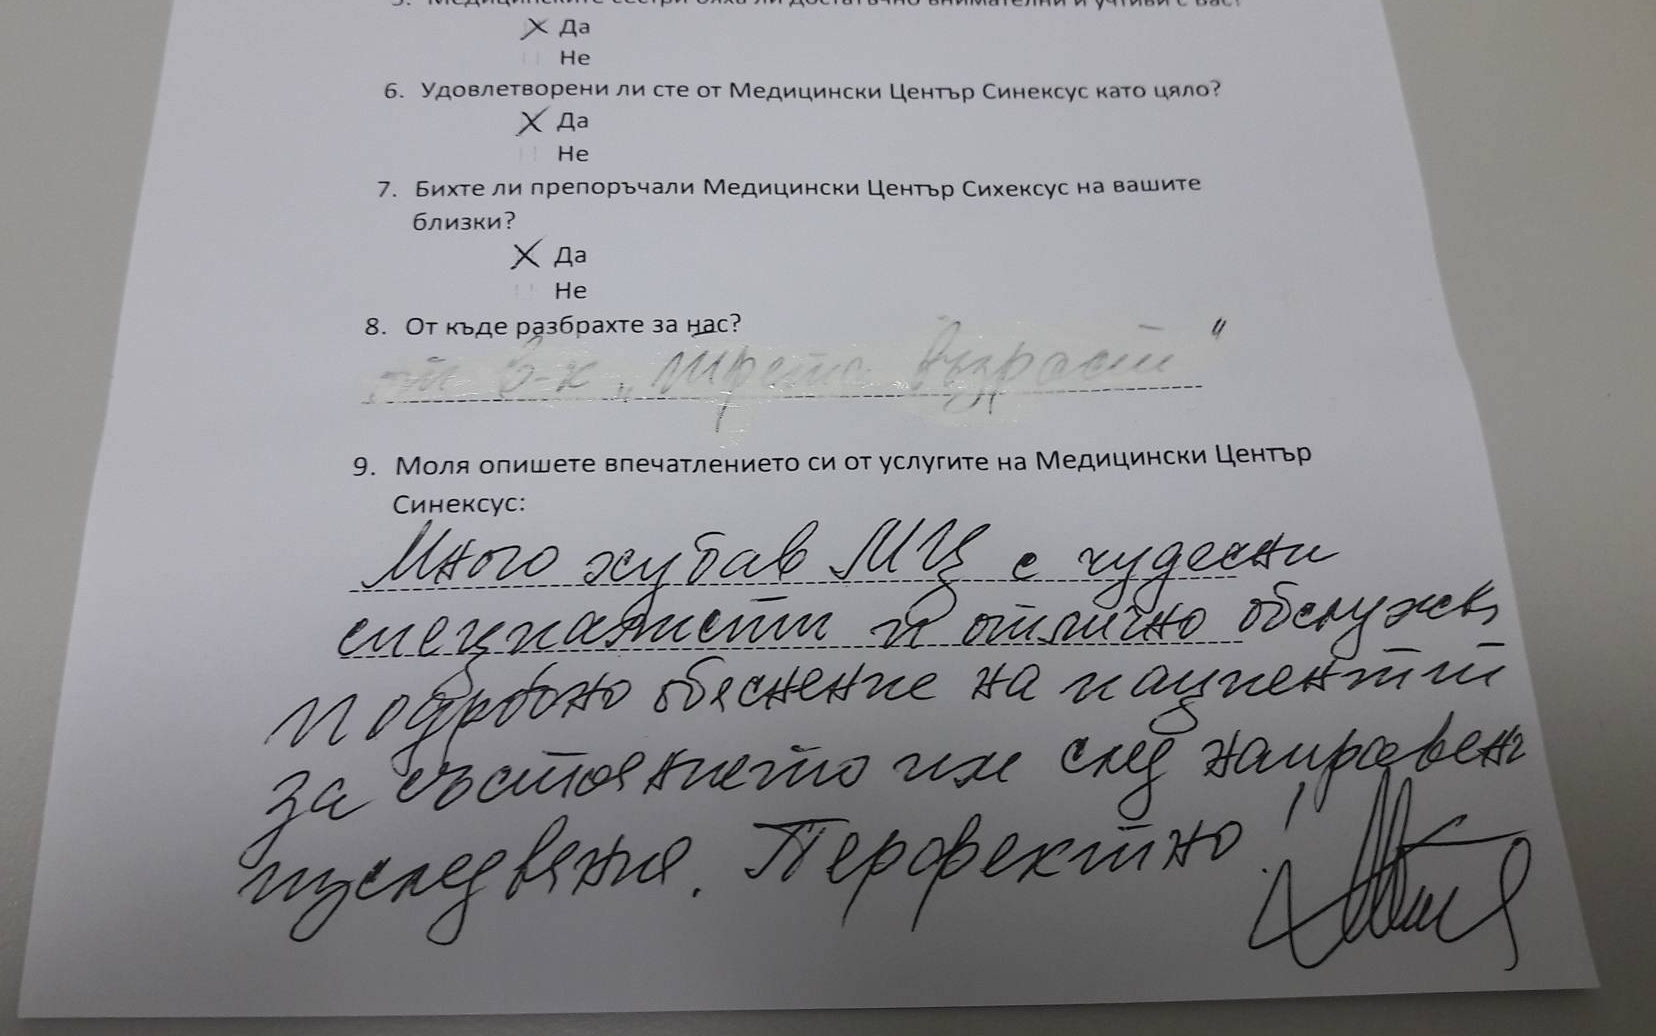 5. Медицинските сестри бяха ли достатъчно внимателни и учтиви с вас?
X Да
Не
6. Удовлетворени ли сте от Медицински Център Синексус като цяло?
X Да
Не
7. Бихте ли препоръчали Медицински Център Сихексус на вашите
близки?
X Да
Не
8. От къде разбрахте за нас?
от в-к „Трета възраст“
9. Моля опишете впечатлението си от услугите на Медицински Център
Синексус:
Много хубав МЦ с чудесни
специалисти и отлично обслужв,
подробно обяснение на пациентит
за състоянието им след направени
изследвания. Перфектно!